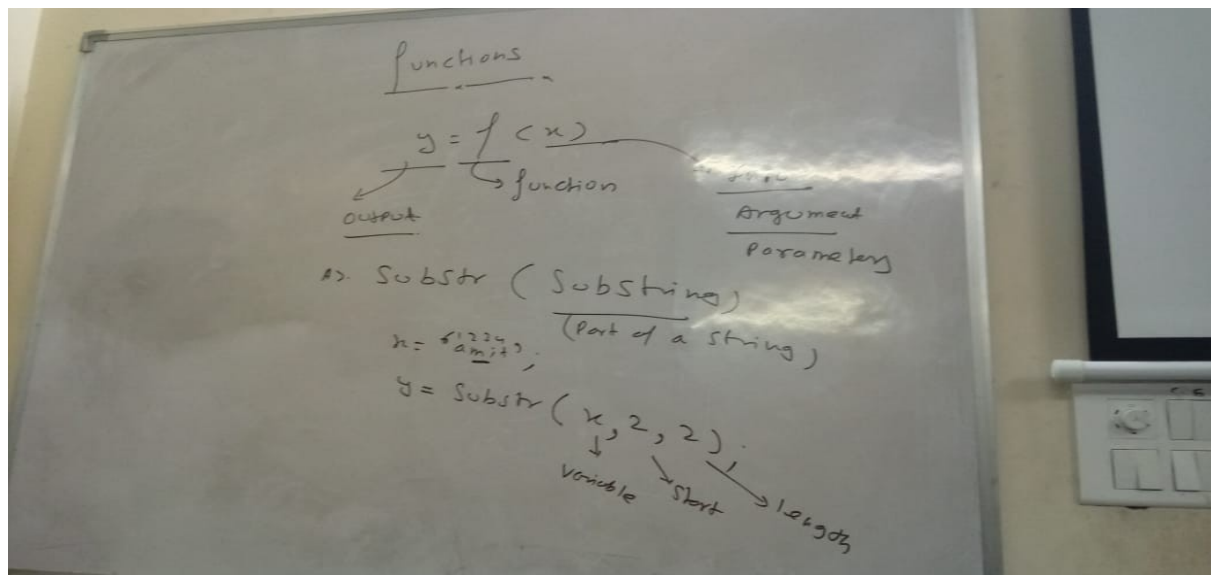 functions
y = f (x)
function
output
Argument
Parameters
Substr ( Substring )
(Part of a string)
1 2 3 4
x = "amit";
y = Substr ( x, 2, 2 );
Variable
Start
length